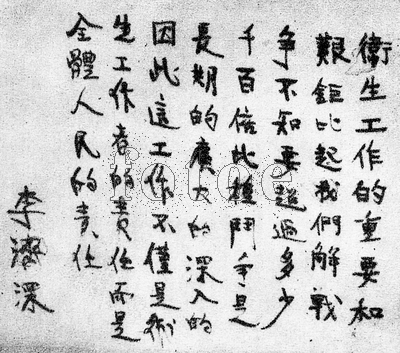 衛生工作的重要和
艱鉅比起我們解戰
争不知要超過多少
千百倍比種鬥争是
長期的廣大的深入的
因此這工作不僅是衛
生工作者的責任而是
全體人民的責任
李濟深
fotoe